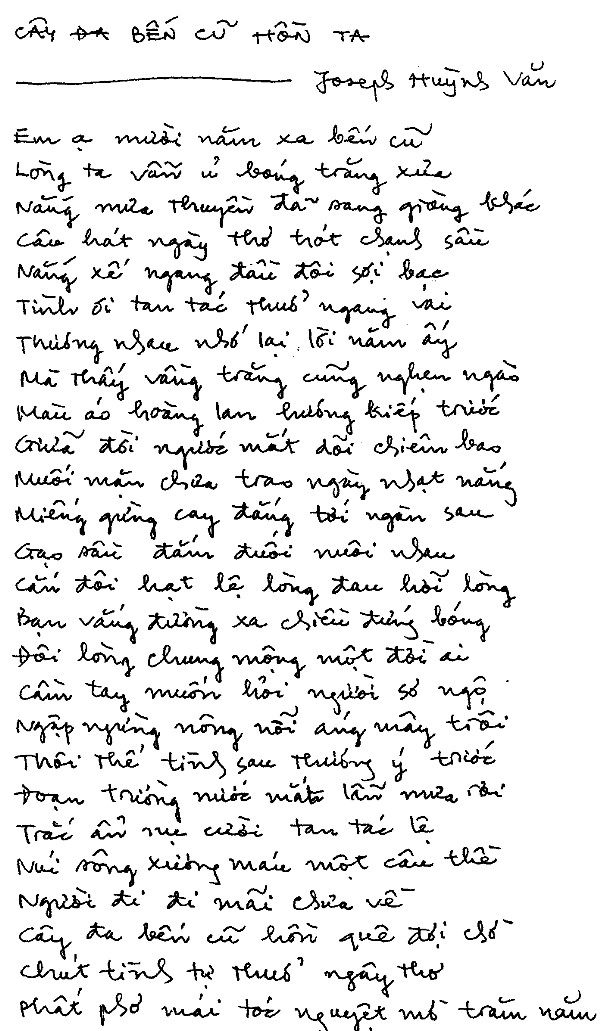 CÂY ĐA BẾN CŨ HỒN TA
Joseph Huỳnh Văn
Em ạ mười năm xa bến cũ
Lòng ta vẫn ủ bóng trăng xưa
Nắng mưa thuyền đã sang giòng khác
Câu hát ngày thơ trót chạnh sầu
Nắng xế ngang đầu đôi sợi bạc
Tình ơi tan tác thuở ngang vai
Thương nhau nhớ lại lời năm ấy
Mà thấy vầng trăng cũng nghẹn ngào
Màu áo hoàng lan hương kiếp trước
Giữa đời ngước mắt dõi chiêm bao
Muối mặn chưa trao ngày nhạt nắng
Miếng gừng cay đắng tới ngàn sau
Gạo sầu đắm đuối nuôi nhau
Cắn đôi hạt lệ lòng đau hỡi lòng
Bạn vắng đường xa chiều đứng bóng
Đôi lòng chung mộng một đời ai
Cầm tay muốn hỏi người sơ ngộ
Ngập ngừng nông nỗi áng mây trôi
Thôi thế tình sau thương ý trước
Đoạn trường nước mắt lẫn mưa rơi
Trắc ẩn nụ cười tan tác lệ
Núi sông xương máu một câu thề
Người đi đi mãi chưa về
Cây đa bến cũ hồn quê đợi chờ
Chút tình tự thuở ngây thơ
Phất phơ mái tóc nguyệt mờ trăm năm